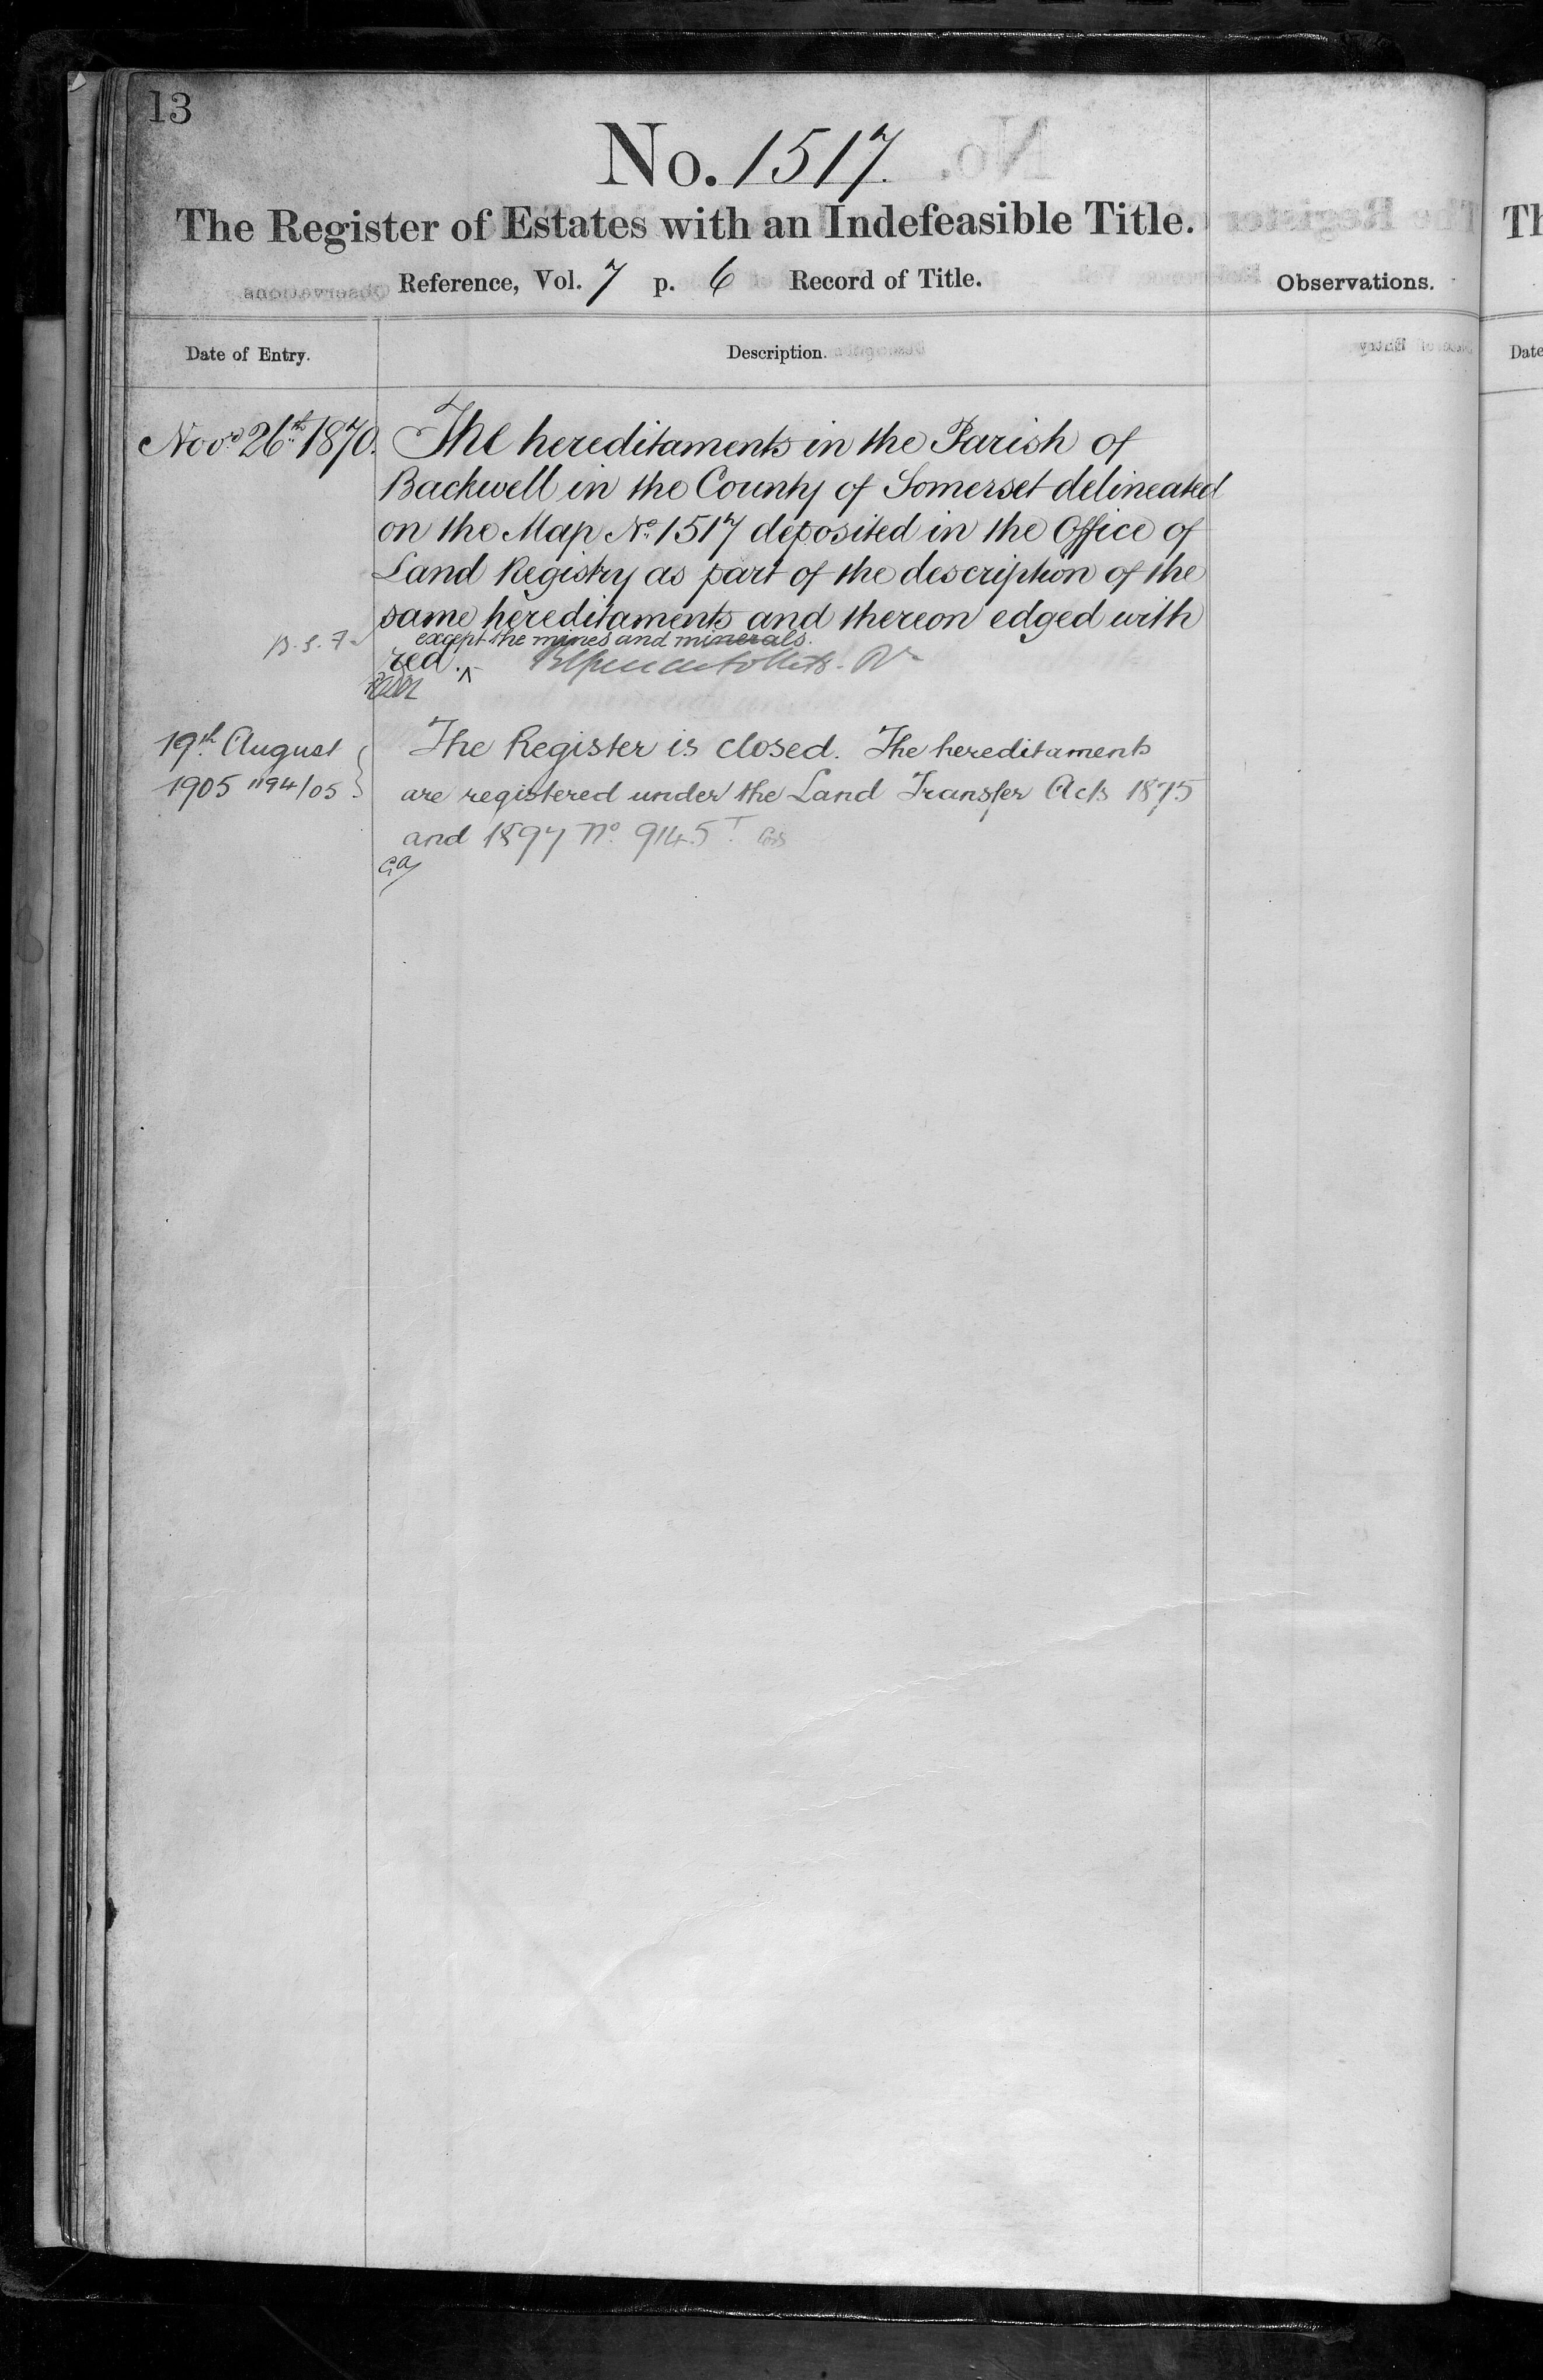 13
No. 1517.
The Register of Estates with an Indefeasible Title.
Reference, Vol. 7 p. 6 Record of Title.
Observations.
Date of Entry.
Description.
Novr 26th 1870.
The hereditaments in the Parish of
Backwell in the County of Somerset delineated
on the Map No. 1517 deposited in the Office of
Land Registry as part of the description of the
same hereditaments and thereon edged with
except the mines and minerals.
B.S.F.
red.
19th August
1905 1194/05
The Register is closed. The hereditaments
are registered under the Land Transfer Acts 1875
and 1897 No. 9145T.
Th
Date